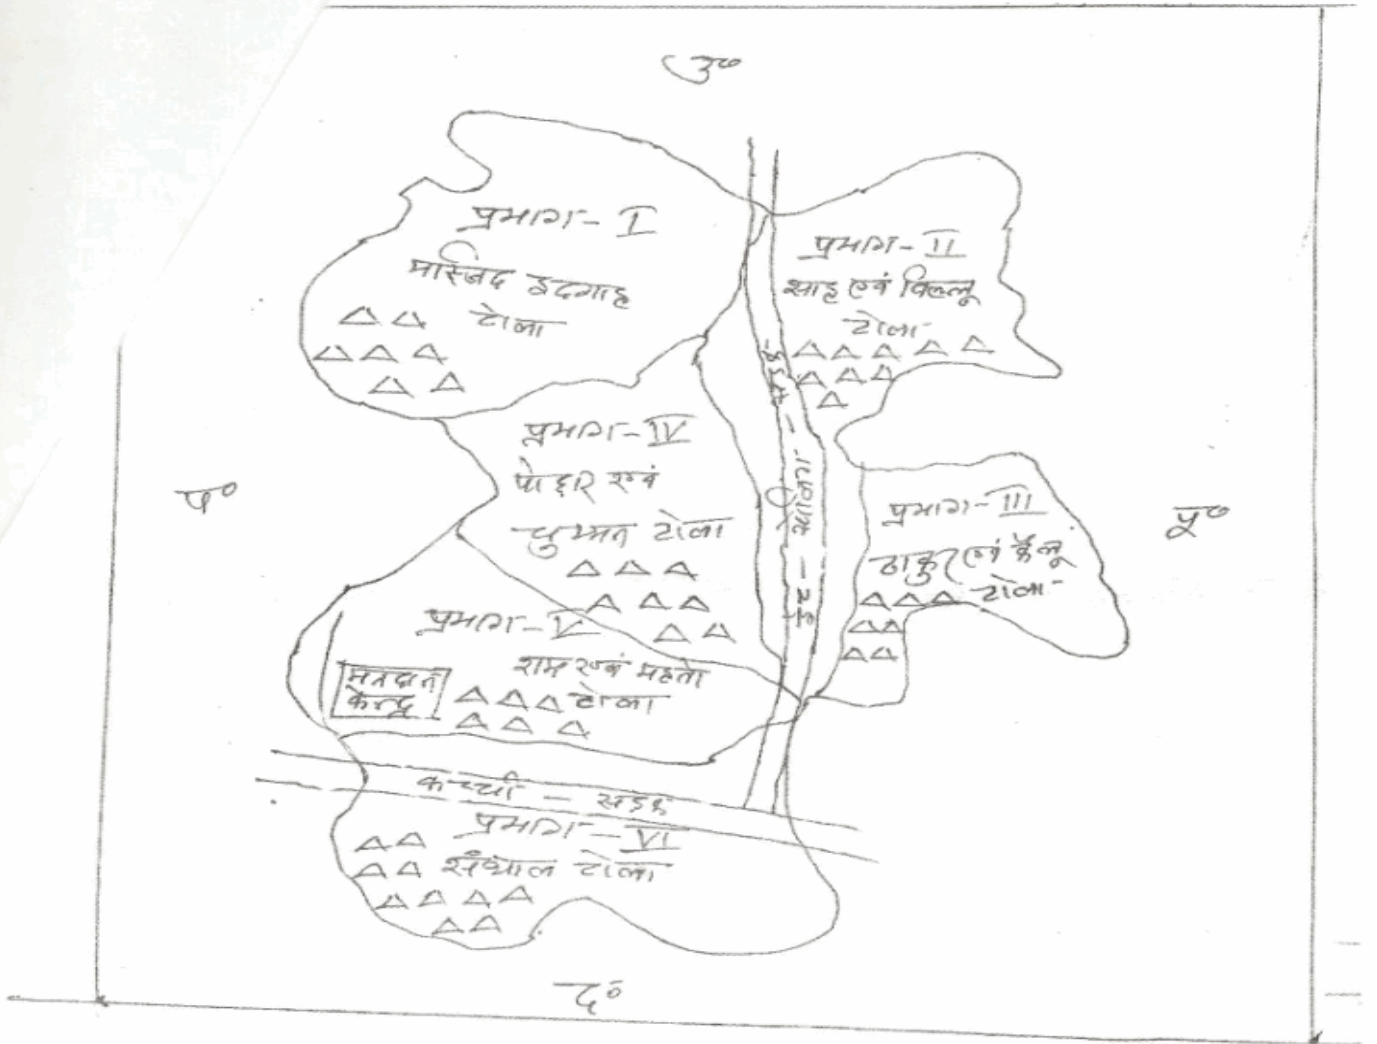 उ०
प्रभाग - I
मस्जिद इदगाह
टोला
प्रभाग - II
साह एवं विल्लू
टोला
प्रभाग - IV
पोद्दार एवं
चुम्मन टोला
प०
पू०
प्रभाग - III
ठाकुर एवं कैलू
टोला
प्रभाग - V
राम एवं महतो
टोला
मतदान
केन्द्र
कच्ची - सड़क
प्रभाग - VI
संथाल टोला
द०